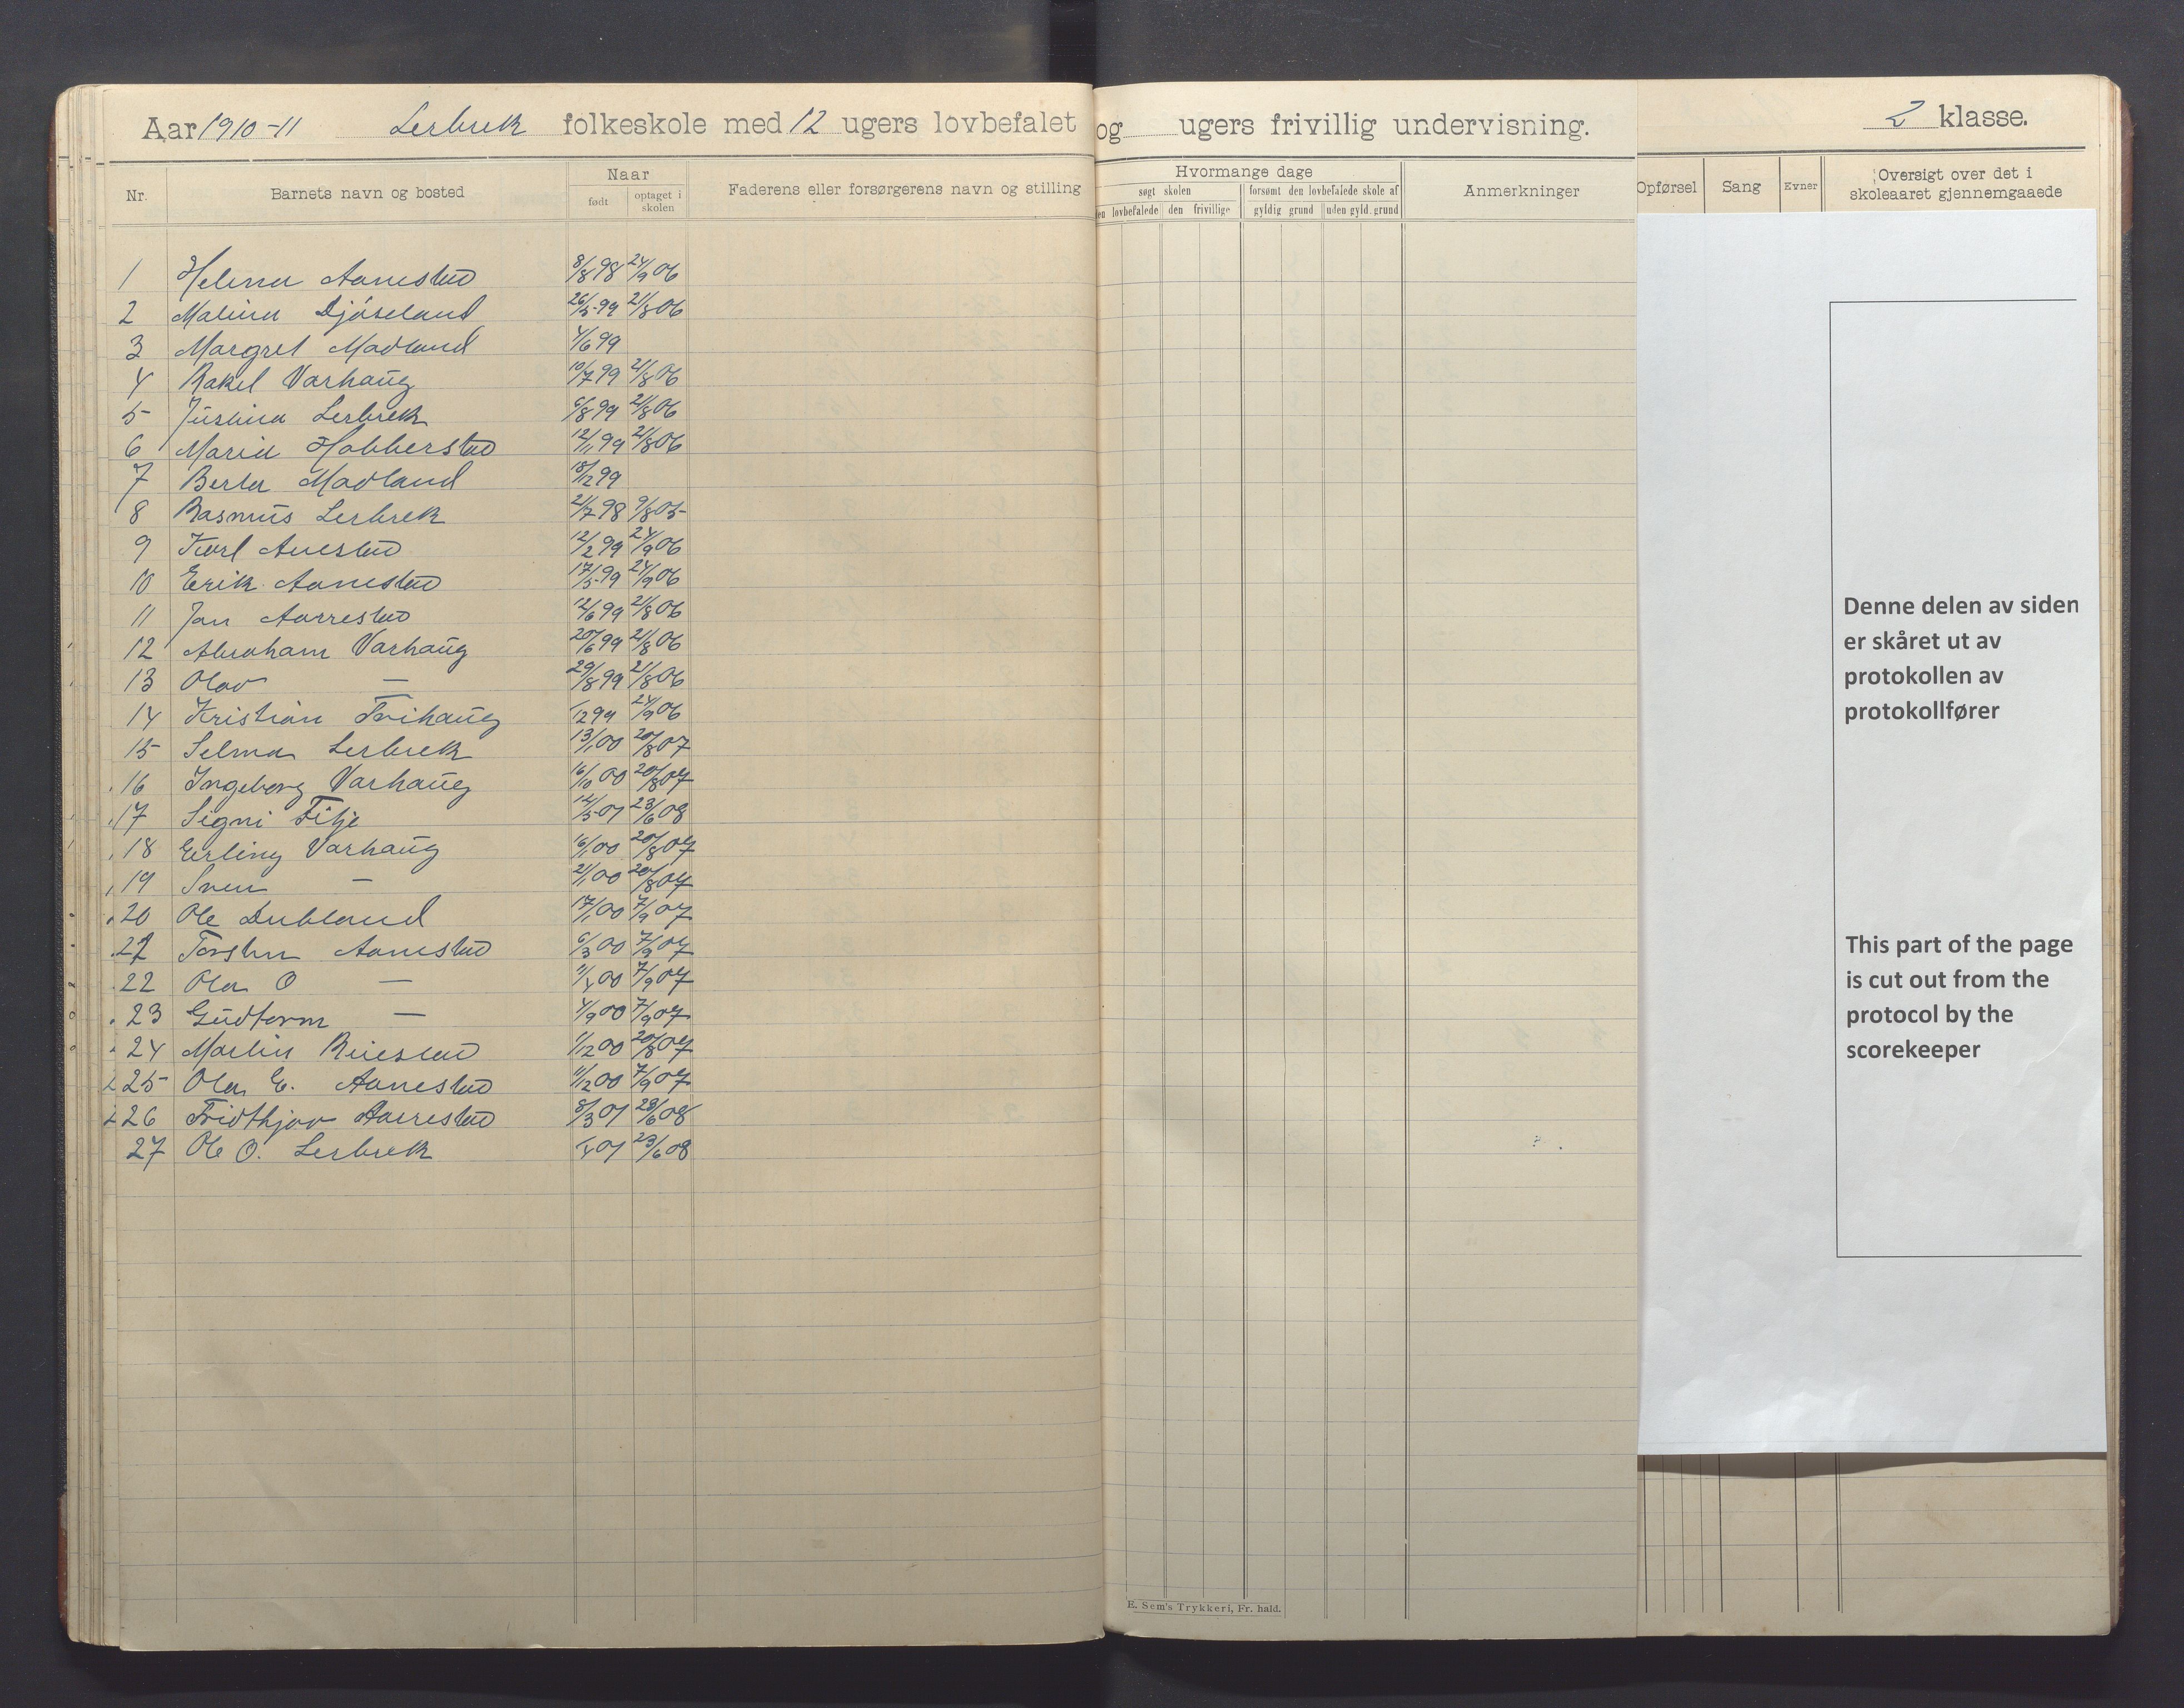 Aar 1910-11 Lerbrek folkeskole med 12 ugers lovbefalet og ugers frivillig undervisning. 2 klasse.
Nr. Barnets navn og bosted Naar Faderens eller forsørgerens navn og stilling Hvormange dage Anmerkninger Opførsel Sang Evner Oversigt over det i skoleaaret gjennemgaaede
født optaget i skolen søgt skolen forsømt den lovbefalede skole af
den lovbefalede den frivillige gyldig grund uden gyld. grund
1 Helena Aanestad 8/8 98 24/9 06
2 Malina Djøseland 26/5-99 21/8 06
3 Margret Madland 4/6 99
4 Rakel Varhaug 10/7 99 21/8 06
5 Justina Lerbrek 6/8 99 21/8 06
6 Maria Habberstad 12/11 99 21/8 06
7 Berta Madland 18/12 99
8 Rasmus Lerbrek 21/7 98 9/8 05
9 Karl Anestad 12/2 99 24/9 06
10 Erik Aanestad 17/5-99 24/9 06
11 Jan Aarrestad 12/6 99 21/8 06
12 Abraham Varhaug 20/6 99 21/8 06
13 Olav — 29/8 99 21/8 06
14 Kristian Tvihaug /12 99 24/9 06
15 Selma Lerbrek 13/1 00 20/8 07
16 Ingeborg Varhaug 16/10 00 20/8 07
17 Signi Fitje 12/5-01 23/6 08
18 Erling Varhaug 16/1 00 20/8 07
19 Sven — 21/1 00 20/8 07
20 Ole Dubland 17/1 00 7/9 07
21 Torsten Aanestad 6/3 00 7/9 07
22 Ola O — 11/4 00 7/9 07
23 Gudtorm — 4/9 00 7/9 07
24 Martin 1/12 00 20/8 07
25 Ola E. Aanestad 11/12 00 7/9 07
26 Fridthjov Aarrestad 8/3 01 23/6 08
27 Ole O. Lerbrek /4 01 23/6 08
Denne delen av siden
er skåret ut av
protokollen av
protokollfører
This part of the page
is cut out from the
protocol by the
scorekeeper
E. Sem's Trykkeri, Fr. hald.